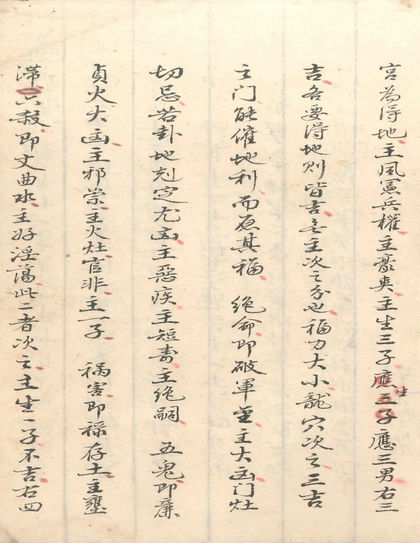 宮為得地主風憲兵權主豪爽主生三子應三子應生三男右三
吉各要得地則皆吉無主次之分也福力大小龍穴次之三吉
之门能催地利而反其福 绝命即破軍金主大凶门灶
切忌若卦地剋宮尤凶主惡疾主短壽主绝嗣 五鬼即廉
貞火大凶主邪祟主火灶官非主一子 禍害即禄存土主壅
滞六殺即文曲水主好淫蕩此二者次之主生一子不吉右四